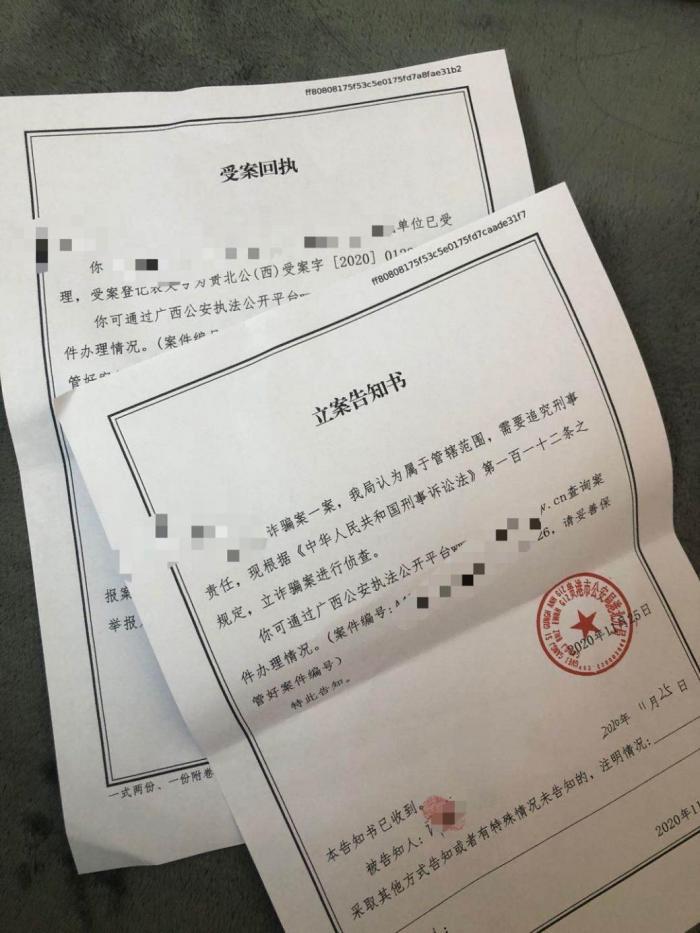 ff80808175f53c5e0175fd7a8fae31b2
受案回执
你
单位已受
理，受案登记表文号为贵北公(西)受案字[2020]01
你可通过广西公安执法公开平台
件办理情况。(案件编
管好
报案
举报
一式两份、一份附卷
ff80808175f53c5e0175fd7caade31f7
立案告知书
诈骗案一案，我局认为属于管辖范围，需要追究刑事
责任，现根据《中华人民共和国刑事诉讼法》第一百一十二条之
规定，立诈骗案进行侦查。
你可通过广西公安执法公开平台 .cn查询案
件办理情况。(案件编号: 26，请妥善保
管好案件编号)
特此告知。
贵港市公安局港北分局
2020年11月25日
2020年11月25日
本告知书已收到。
被告知人:
采取其他方式告知或者有特殊情况未告知的，注明情况:
2020年11